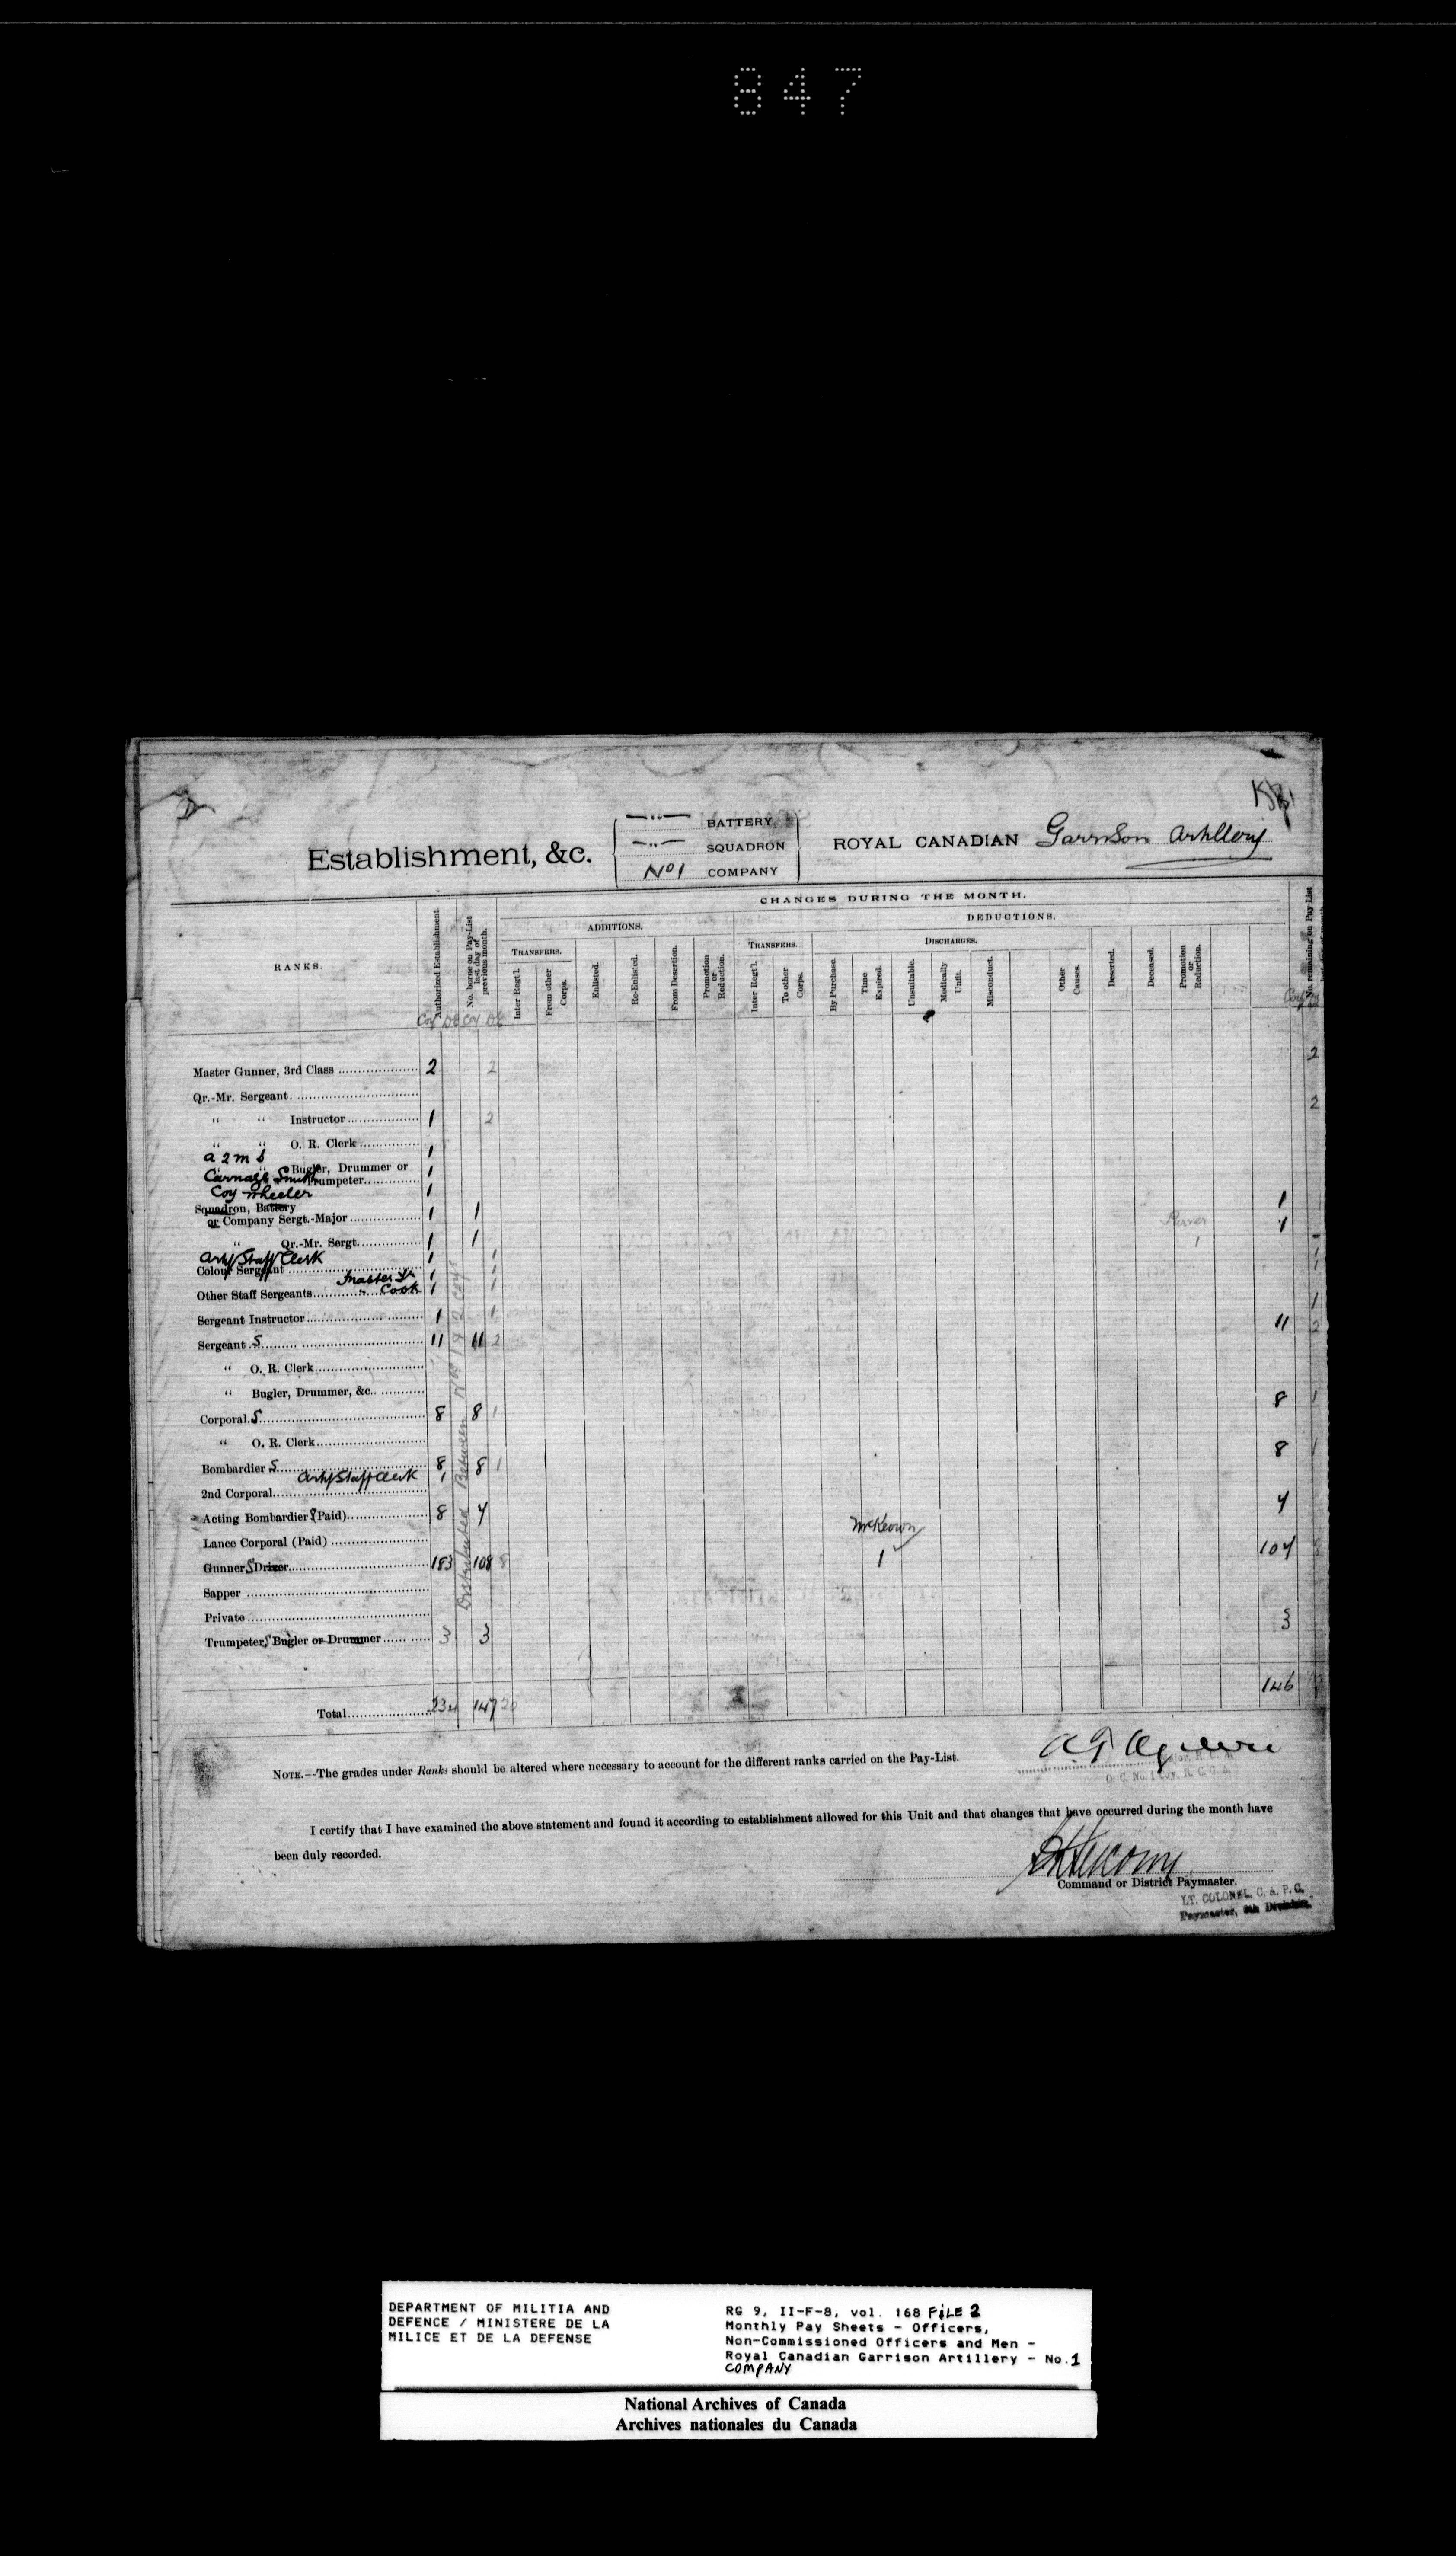 847
Establishment, &c.
BATTERY
SQUADRON
No 1 COMPANY
ROYAL CANADIAN Garrison Artillery
RANKS.
Authorized Establishment.
No. borne on Pay-List last day of previous month.
CHANGES DURING THE MONTH.
ADDITIONS.
DEDUCTIONS.
TRANSFERS.
TRANSFERS.
DISCHARGES.
Inter Reg't.
From other Corps.
Enlisted.
Re-Enlisted.
From Desertion.
Promotion or Reduction.
Inter Reg't.
To other Corps.
By Purchase.
Time Expired.
Unsuitable.
Medically Unfit.
Misconduct.
Other Causes.
Deserted.
Deceased.
Promotion or Reduction.
No. remaining on Pay-List
Coy Coy
Master Gunner, 3rd Class 2 2 2
Qr.-Mr. Sergeant.
" " Instructor 1 2 2
" " O. R. Clerk 1
" Bugler, Drummer or Trumpeter 1
Carriage Smith
Coy Wheeler 1
Squadron, Battery
or Company Sergt.-Major 1 1 1
" Qr.-Mr. Sergt. 1 1 1 1
Arty Staff Clerk 1 1
Colour Sergeant 1 1
Master Tr
Other Staff Sergeants " Cook 1 1
Sergeant Instructor 1 1 1
Sergeant s 11 11 2 11 2
" O. R. Clerk
" Bugler, Drummer, &c.
Corporal s 8 8 1 8 1
" O. R. Clerk
Bombardier s 8 8 1 8 1
Arty Staff Clerk 1
2nd Corporal
Acting Bombardier s (Paid) 8 4
Lance Corporal (Paid)
McKeown
Gunner s Driver 183 108 8 1 107
Sapper
Private
Trumpeter, Bugler or Drummer 3 3 3
Distributed Between
Total 234 147 20 146
NOTE.—The grades under Ranks should be altered where necessary to account for the different ranks carried on the Pay-List.
O. C. No. 1 Coy. R. C. G. A.
I certify that I have examined the above statement and found it according to establishment allowed for this Unit and that changes that have occurred during the month have
been duly recorded.
Command or District Paymaster.
LT. COLONEL, C. A. P. C.
Paymaster, 6th Division.
DEPARTMENT OF MILITIA AND
DEFENCE / MINISTERE DE LA
MILICE ET DE LA DEFENSE
RG 9, II-F-8, vol. 168 FiLE 2
Monthly Pay Sheets - Officers,
Non-Commissioned Officers and Men -
Royal Canadian Garrison Artillery - No.1
COMPANY
National Archives of Canada
Archives nationales du Canada